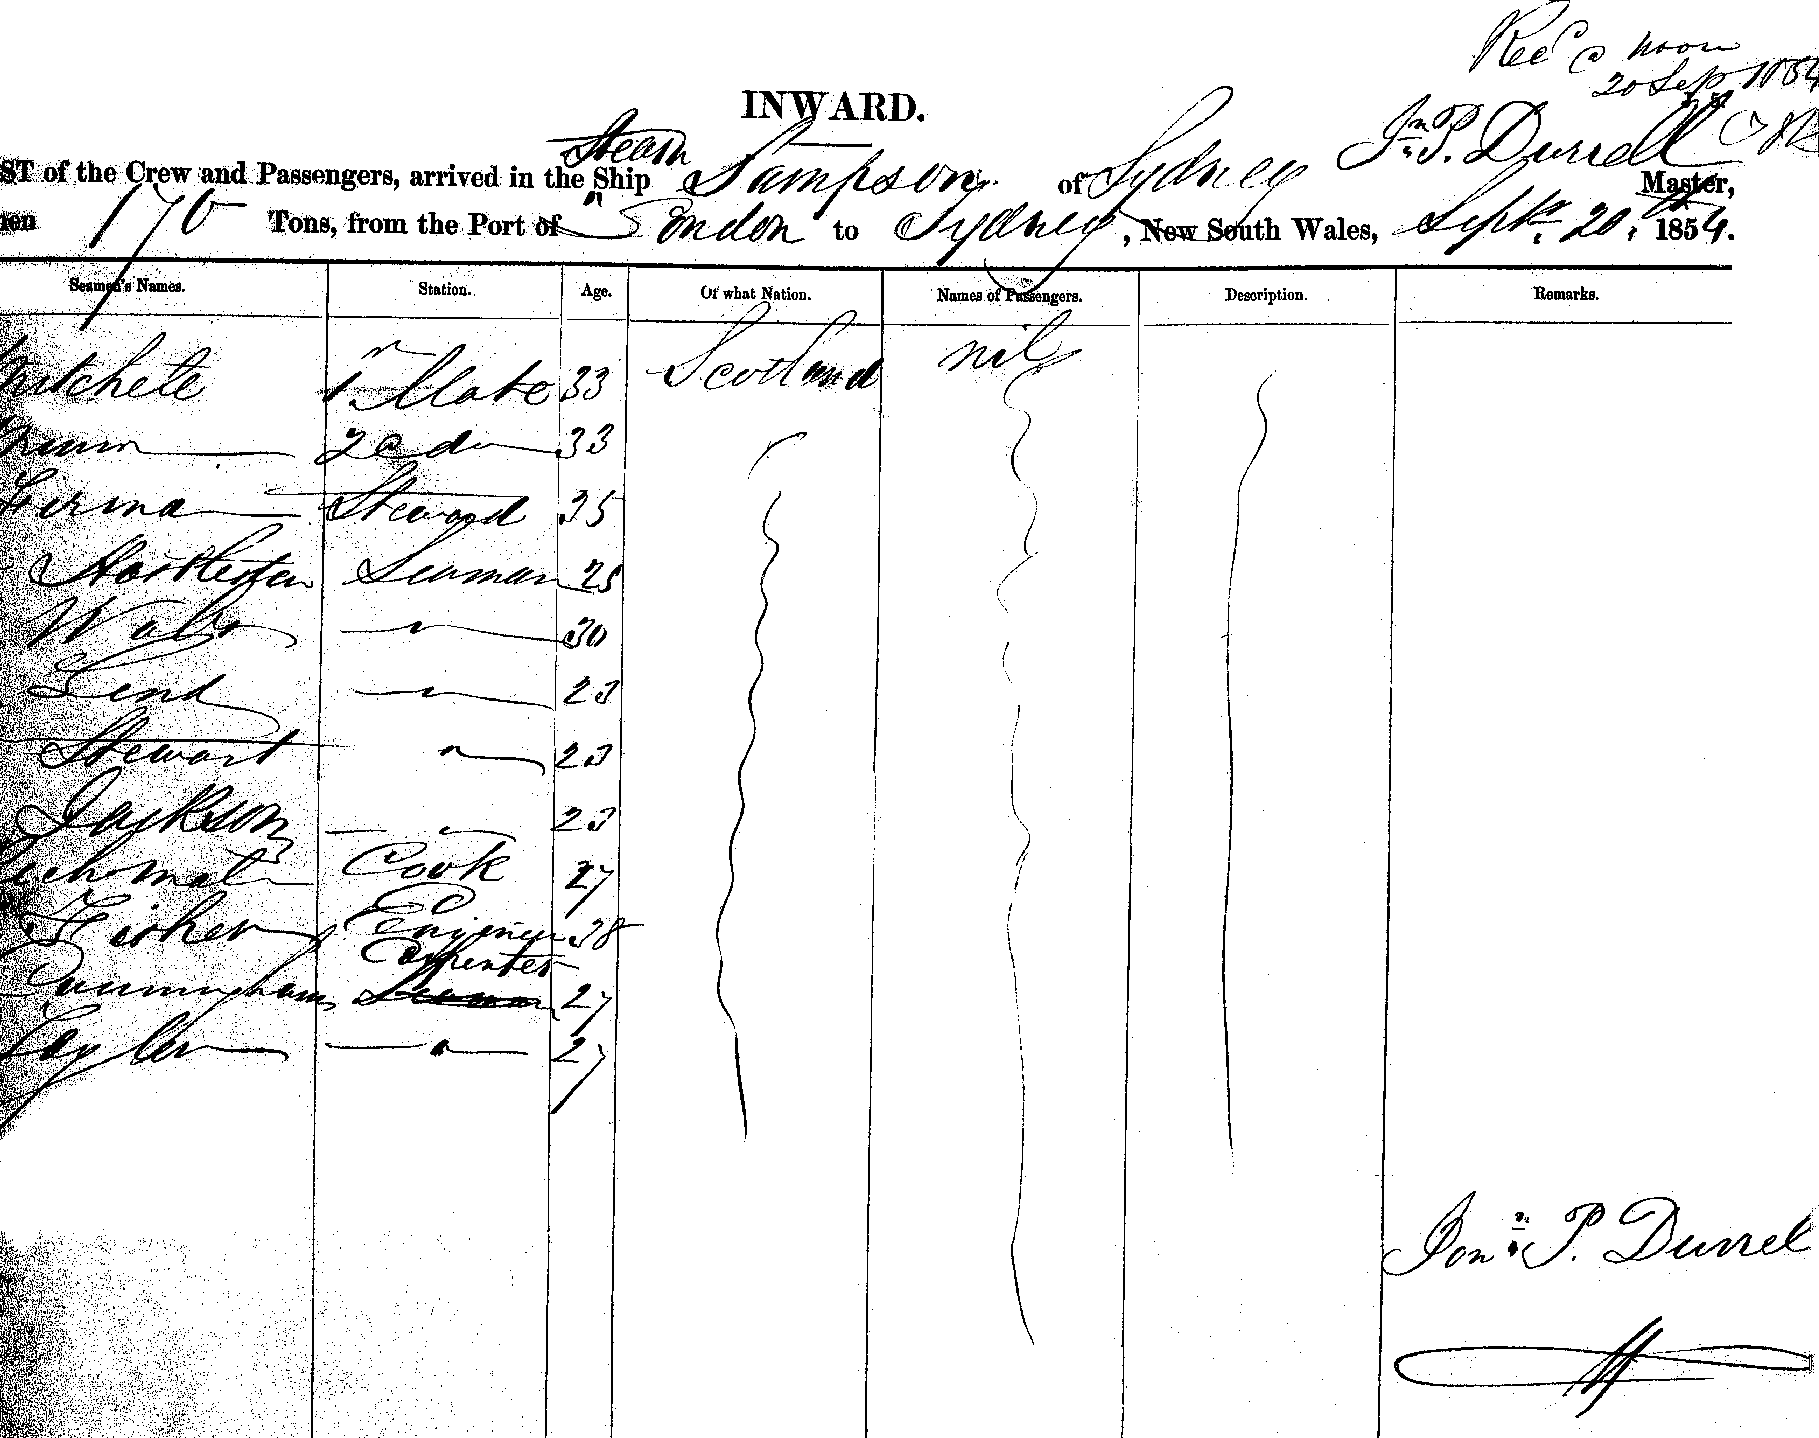 Recd @ noon
20 Sep 1854
INWARD.
ST of the Crew and Passengers, arrived in the Steam Ship Sampson of Sydney Jn. P. Durrell Master,
170 Tons, from the Port of London to Sydney, New South Wales, Septr. 20th 1854.
Seamen's Names. Station. Age. Of what Nation. Names of Passengers. Description. Remarks.
Mitchele 1 Mate 33 Scotland nil
2e do 33
Steward 35
Seaman 25
30
Lend " 23
Stewart " 23
Jackson " 23
Cook 27
Fisher Engineer 38
Cunningham Carpenter Seaman 27
Tayler " 27
Jon. P. Durrel